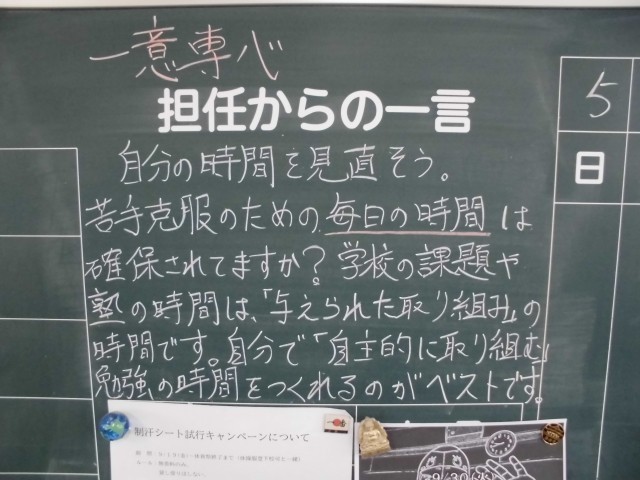 一意専心
担任からの一言
5
日
自分の時間を見直そう。
苦手克服のための毎日の時間は
確保されてますか?学校の課題や
塾の時間は、「与えられた取り組み」の
時間です。自分で「自主的に取り組む」
勉強の時間をつくれるのがベストです。
制汗シート試行キャンペーンについて